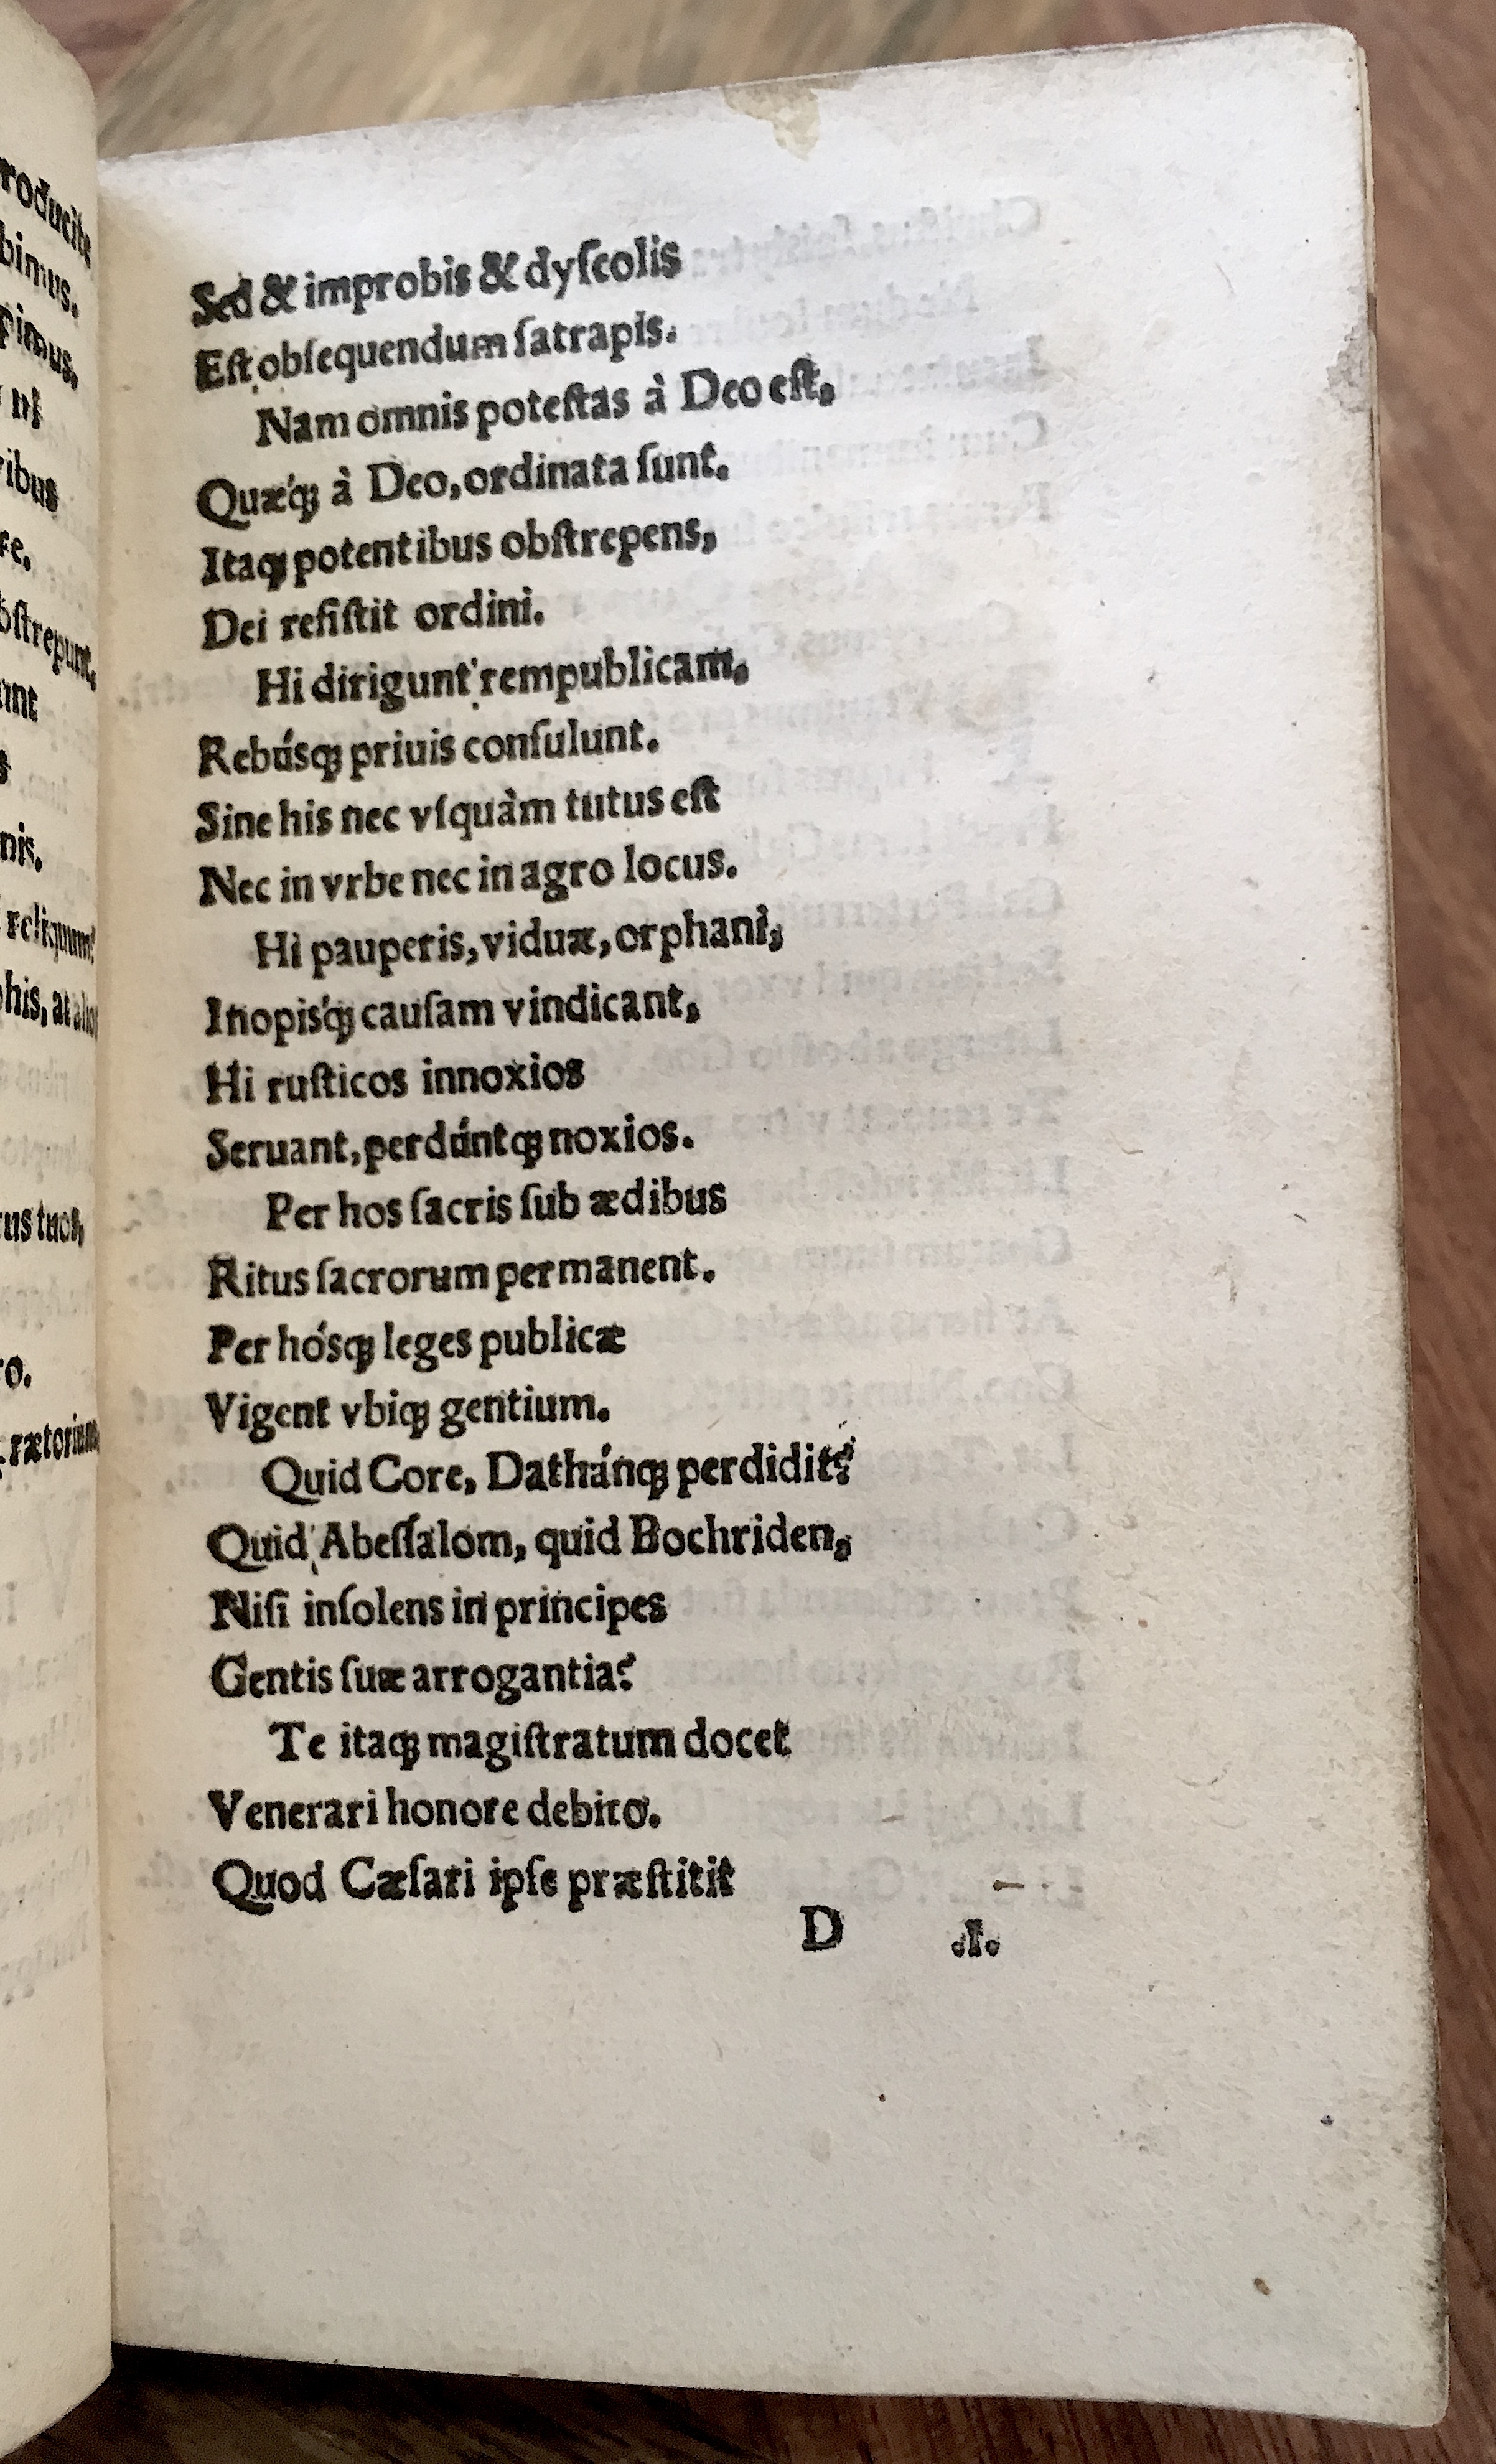 roducite
bimus.
pimus.
ribus
re,
bstrepunt.
unt
nis,
reliquum?
phis, at alios
rus tuos,
ro.
prætorium
Sed & improbis & dyſcolis
Eſt obſequendum ſatrapis.
Nam omnis poteſtas à Deo eſt,
Quæq́ꝫ à Deo, ordinata ſunt.
Itaqꝫ potentibus obſtrepens,
Dei reſiſtit ordini.
Hi dirigunt rempublicam,
Rebúsqꝫ priuis conſulunt.
Sine his nec vſquàm tutus eſt
Nec in vrbe nec in agro locus.
Hi pauperis, viduæ, orphani,
Inopisq́ꝫ cauſam vindicant,
Hi ruſticos innoxios
Seruant, perdúntqꝫ noxios.
Per hos ſacris ſub ædibus
Ritus ſacrorum permanent.
Per hósqꝫ leges publicæ
Vigent vbiqꝫ gentium.
Quid Core, Dathánqꝫ perdidit?
Quid Abeſſalom, quid Bochriden,
Niſi inſolens in principes
Gentis ſuæ arrogantia?
Te itaqꝫ magiſtratum docet
Venerari honore debito.
Quod Cæſari ipſe præſtitit
D .I.